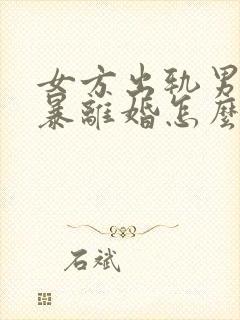 女方出轨男
暴離婚怎麼
石斌